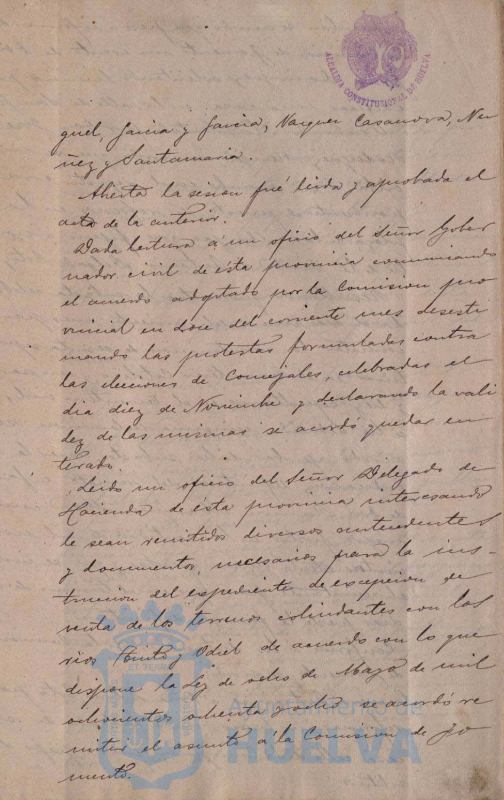 ALCALDIA CONSTITUCIONAL DE HUELVA
guel, Garcia y Garcia, Vazquez Casanova, Nu
ñez y Santamaria.
Abierta la sesion fué leida y aprobada el
acta de la anterior.
Dada lectura a un oficio del Señor Gober
nador civil de ésta provincia comunicando
el acuerdo adoptado por la Comision pro
vincial en doce del corriente mes desesti
mando las protestas formuladas contra
las elecciones de Concejales, celebradas el
dia diez de Noviembre y declarando la vali
dez de las mismas se acordó quedar en
terado.
Leido un oficio del Señor Delegado de
Hacienda de ésta provincia interesando
le sean remitidos diversos antecedentes
y documentos, necesarios para la ins-
truccion del expediente de excepcion de
venta de los terrenos colindantes con los
rios Tinto y Odiel de acuerdo con lo que
dispone la Ley de ocho de Mayo de mil
ochocientos ochenta y ocho se acordó re
mitir el asunto á la Comision de Fo
mento.
Ayuntamiento de
HUELVA